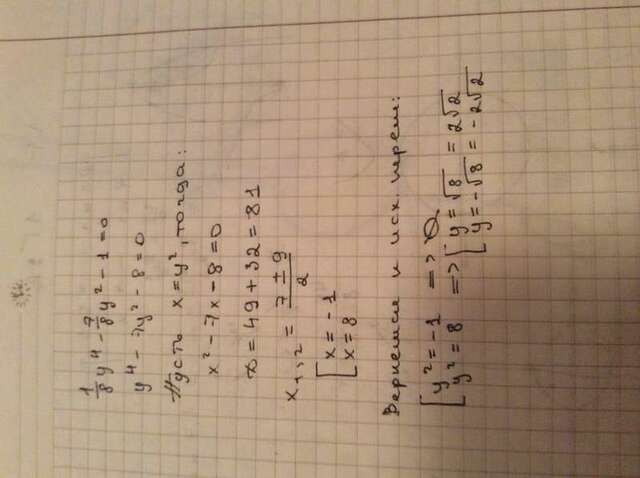 1/8 y⁴ - 7/8 y² - 1 = 0
y⁴ - 7y² - 8 = 0
Пусть x = y², тогда:
x² - 7x - 8 = 0
D = 49 + 32 = 81
x₁,₂ = (7 ± 9)/2
[ x = -1
x = 8
Вернемся к исх. перем:
[ y² = -1 => ∅
y² = 8 => [ y = √8 = 2√2
y = -√8 = -2√2